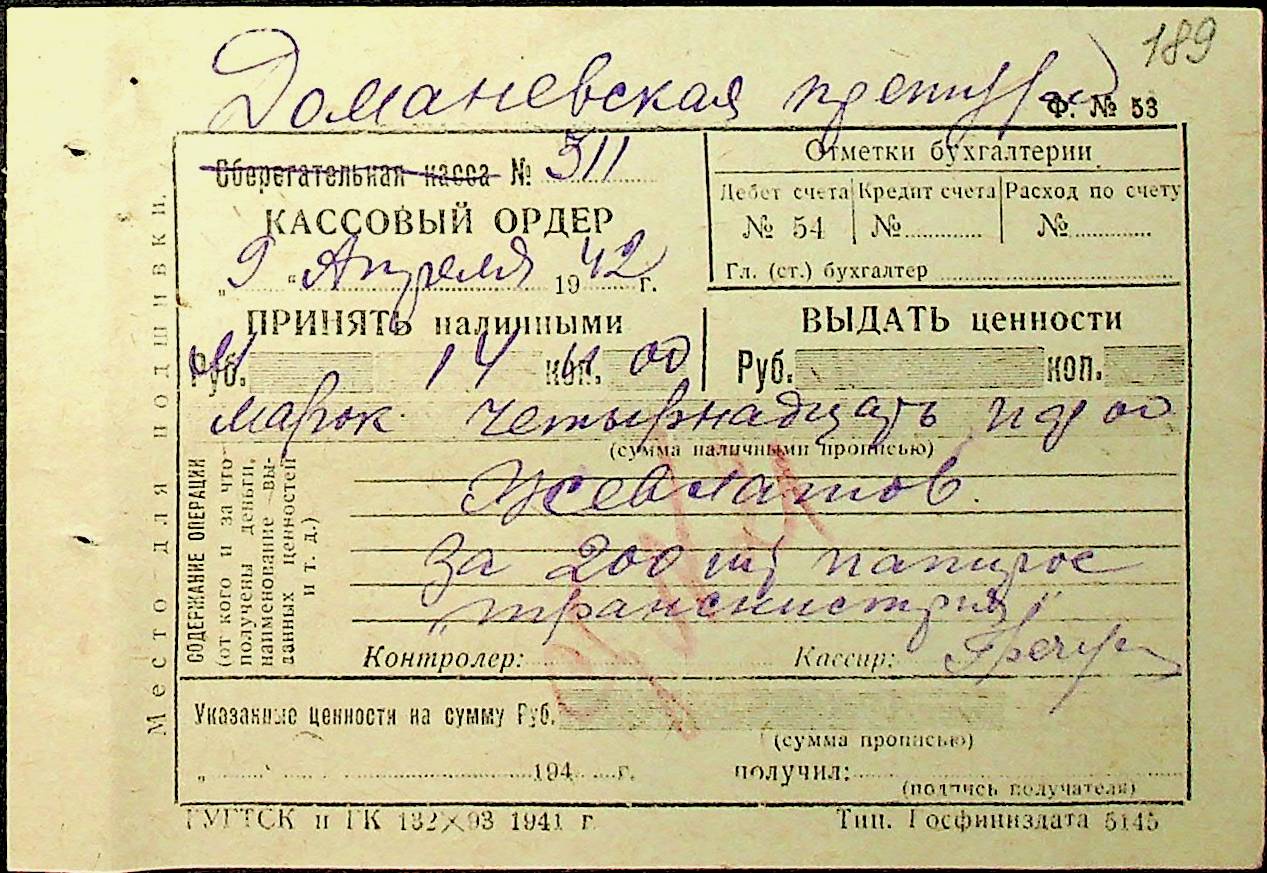 189
Доманевская претура
Ф. № 53
Сберегательная касса № 511
КАССОВЫЙ ОРДЕР
„ 9 “ Апреля 1942 г.
Отметки бухгалтерии
Дебет счета Кредит счета Расход по счету
№ 54 № №
Гл. (ст.) бухгалтер
ПРИНЯТЬ наличными
Руб. 14 коп. 00
ВЫДАТЬ ценности
Руб. коп.
марок четырнадцать пф 00
(сумма наличными прописью)
Жевлатов
За 200 шт папирос
„транснистрия"
СОДЕРЖАНИЕ ОПЕРАЦИИ
(от кого и за что
получены деньги,
наименование вы-
данных ценностей
и т. д.)
Контролер: Кассир:
Указанные ценности на сумму Руб.
(сумма прописью)
„ “ 194 г. получил:
(подпись получателя)
ГУГТСК и ГК 132×93 1941 г.
Тип. Госфиниздата 5145
Место для подшивки.